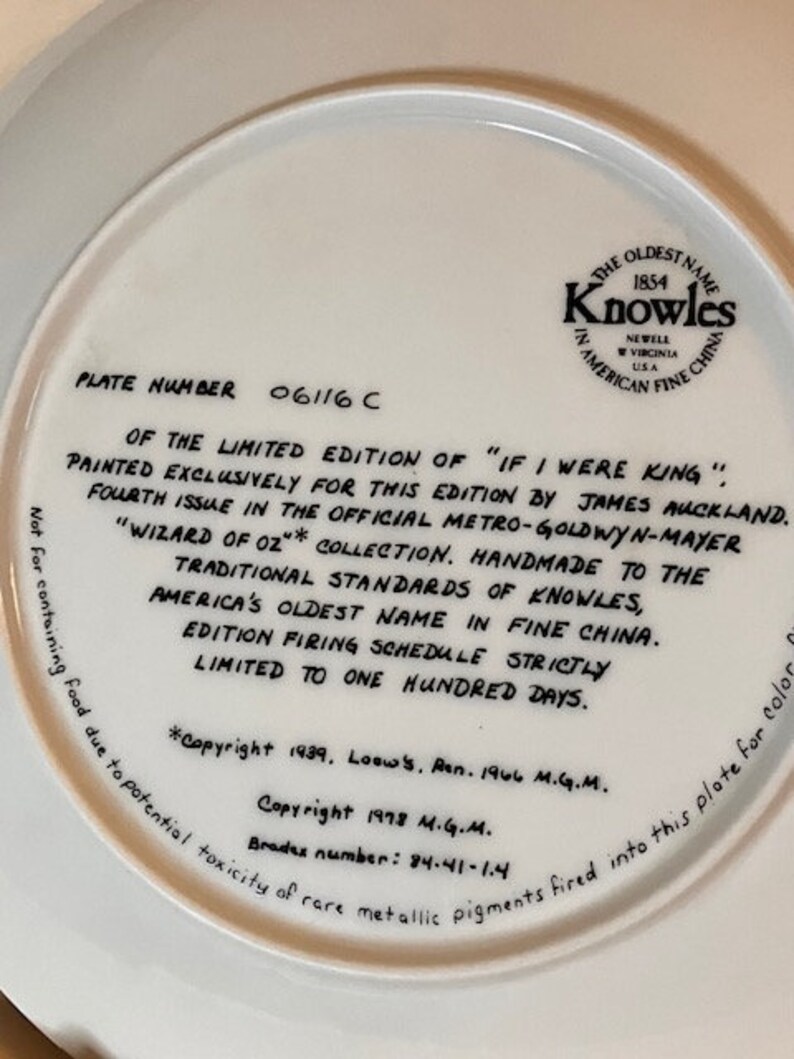 THE OLDEST NAME
1854
Knowles
NEWELL
W VIRGINIA
U.S.A
IN AMERICAN FINE CHINA
PLATE NUMBER 06116 C
OF THE LIMITED EDITION OF "IF I WERE KING".
PAINTED EXCLUSIVELY FOR THIS EDITION BY JAMES AUCKLAND.
FOURTH ISSUE IN THE OFFICIAL METRO-GOLDWYN-MAYER
"WIZARD OF OZ"* COLLECTION. HANDMADE TO THE
TRADITIONAL STANDARDS OF KNOWLES,
AMERICA'S OLDEST NAME IN FINE CHINA.
EDITION FIRING SCHEDULE STRICTLY
LIMITED TO ONE HUNDRED DAYS.
*Copyright 1939, Loew's, Ren. 1966 M.G.M.
Copyright 1978 M.G.M.
Bradex number: 84-41-1.4
Not for containing food due to potential toxicity of rare metallic pigments fired into this plate for color